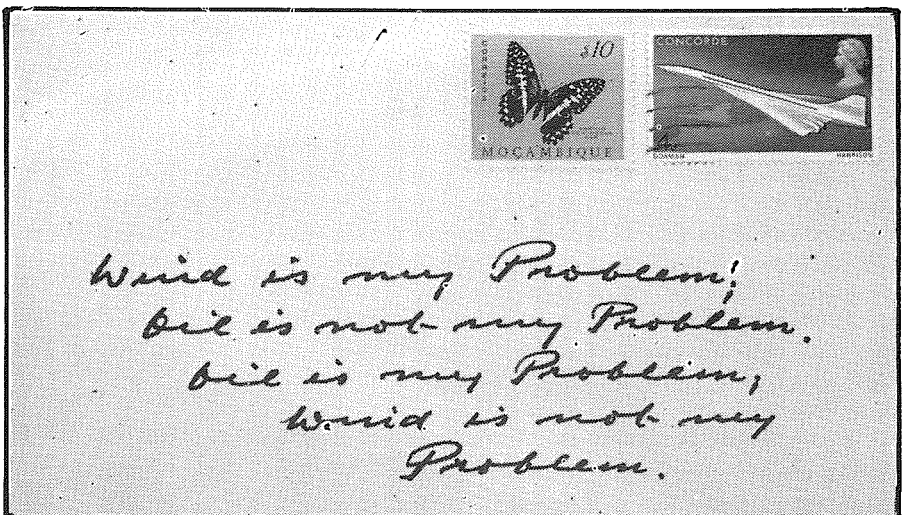 $10
MOÇAMBIQUE
CONCORDE
DORMAN
HARRISON
Wind is my Problem;
Oil is not my Problem.
Oil is my Problem,
Wind is not my
Problem.